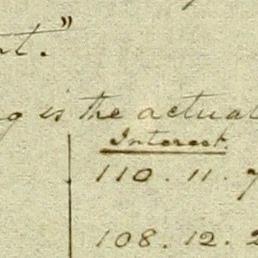 nt."
g is the actual
Interest.
110. 11. 7
108. 12. 2